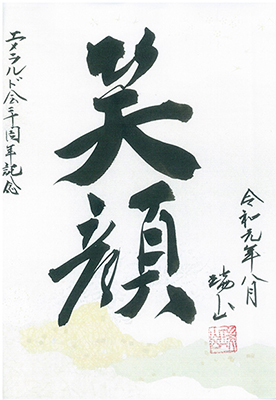 令和元年八月
瑞山
笑顔
エメラルド会三十周年記念